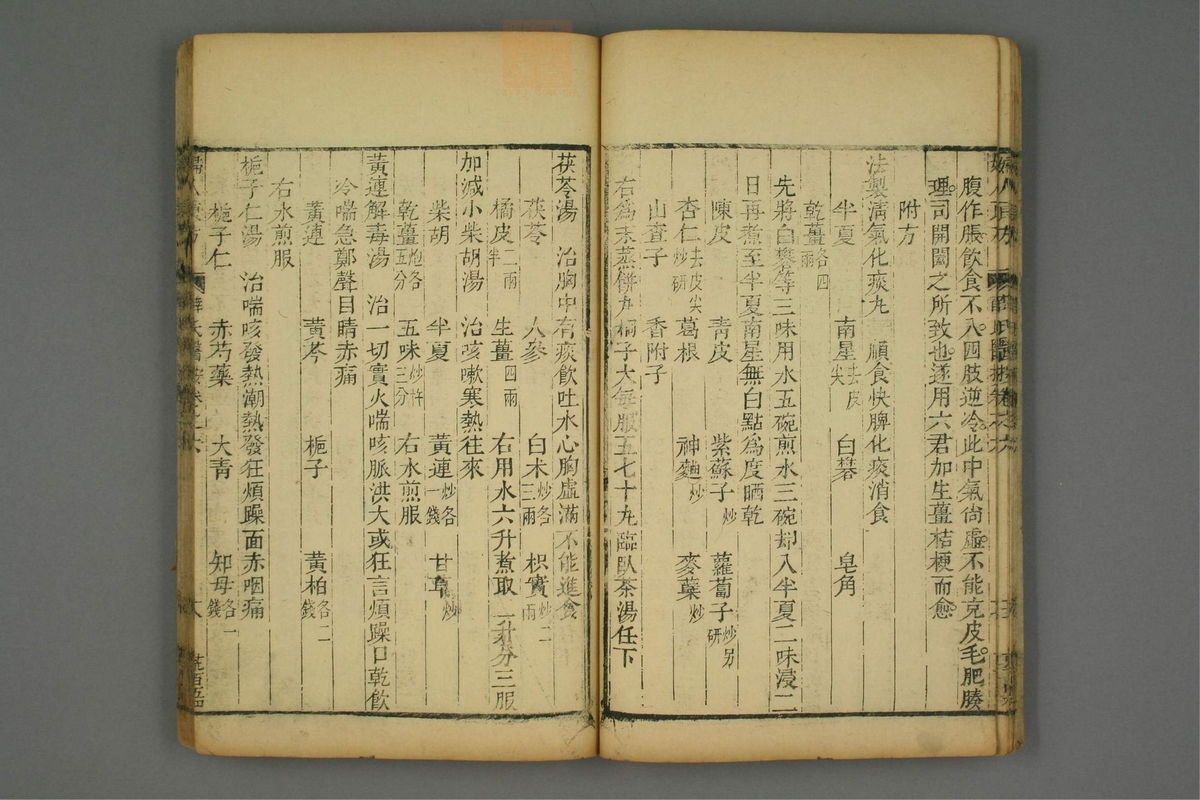 腹作脹飲食不入四肢逆冷此中氣尙虛不能克皮毛肥腠
理司開闔之所致也遂用六君加生薑桔梗而愈
附方
法製淸氣化痰丸　順食快脾化痰消食
半夏　南星去皮尖　白礬　皂角
乾薑各四兩
先將白礬等三味用水五碗煎水三碗却入半夏二味浸二
日再煮至半夏南星無白點爲度晒乾
陳皮　靑皮　紫蘇子炒　蘿蔔子炒另硏
杏仁去皮尖炒硏　葛根　神麯炒　麥蘖炒
山查子　香附子
右爲末蒸餅丸桐子大每服五七十丸臨臥茶湯任下
茯苓湯　治胸中有痰飮吐水心胸虛滿不能進食
茯苓　人參　白术炒各三兩　枳實炒二兩
橘皮二兩半　生薑四兩　右用水六升煮取一升分三服
加減小柴胡湯　治咳嗽寒熱往來
柴胡　半夏　黃連炒各一錢　甘草炒
乾薑炮各五分　五味炒杵三分　右水煎服
黃連解毒湯　治一切實火喘咳脈洪大或狂言煩躁口乾飮
冷喘急鄭聲目睛赤痛
黃連　黃芩　梔子　黃柏各二錢
右水煎服
梔子仁湯　治喘咳發熱潮熱發狂煩躁面赤咽痛
梔子仁　赤芍藥　大靑　知母各一錢